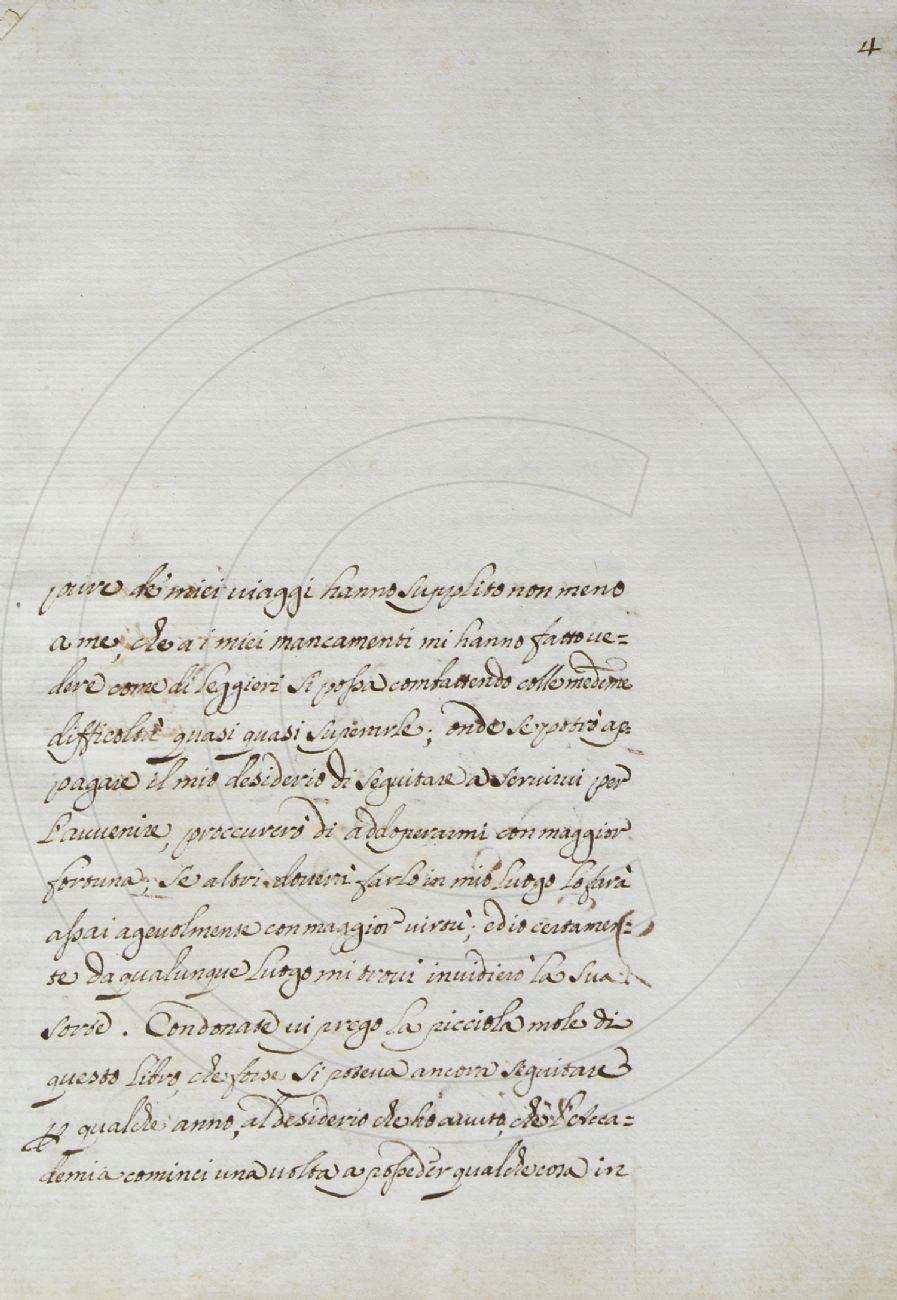 4
pure de' miei viaggi hanno supplito non meno
a me, che a i miei mancamenti mi hanno fatto ve=
dere come di leggieri si possa combattendo colle medeme
difficoltà quasi quasi superarle; onde se potrò ap=
pagare il mio desiderio di seguitare a servirvi per
l'avvenire, proccurerò di addoperarmi con maggior
fortuna; se altri doverà farlo in mio luogo lo farà
assai agevolmente con maggior virtù; ed io certamen=
te da qualunque luogo mi trovi invidierò la sua
sorte. Condonate vi prego la picciola mole di
questo libro, che forse si poteva ancora seguitare
qualche anno, al desiderio che ho avuto, che l'Acca=
demia cominci una volta a posseder qualche cosa in